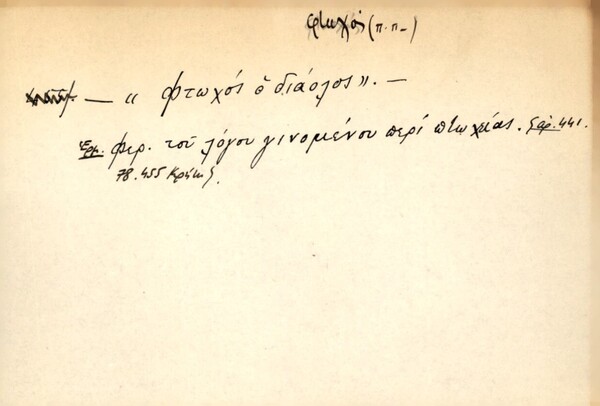 φτωχός (π.π-)
— « φτωχός ὁ διάολος». —
Ἑρμ. φερ. τοῦ λόγου γινομένου περί πτωχείας. Σάρ. 441.
78.455 Κρήτη